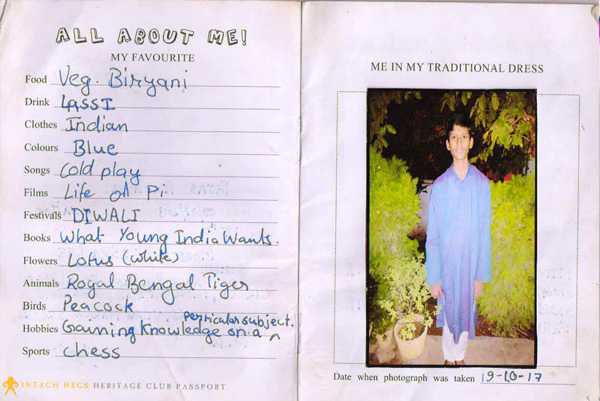 ALL ABOUT ME!
MY FAVOURITE
Food Veg. Biryani
Drink LASSI
Clothes Indian
Colours Blue
Songs Cold play
Films Life of Pi
Festivals DIWALI
Books What Young India Wants.
Flowers Lotus (white)
Animals Royal Bengal Tiger
Birds Peacock
perricular subject.
Hobbies Gaining Knowledge on a
Sports chess
INTACH HECS HERITAGE CLUB PASSPORT
ME IN MY TRADITIONAL DRESS
Date when photograph was taken 19-10-17